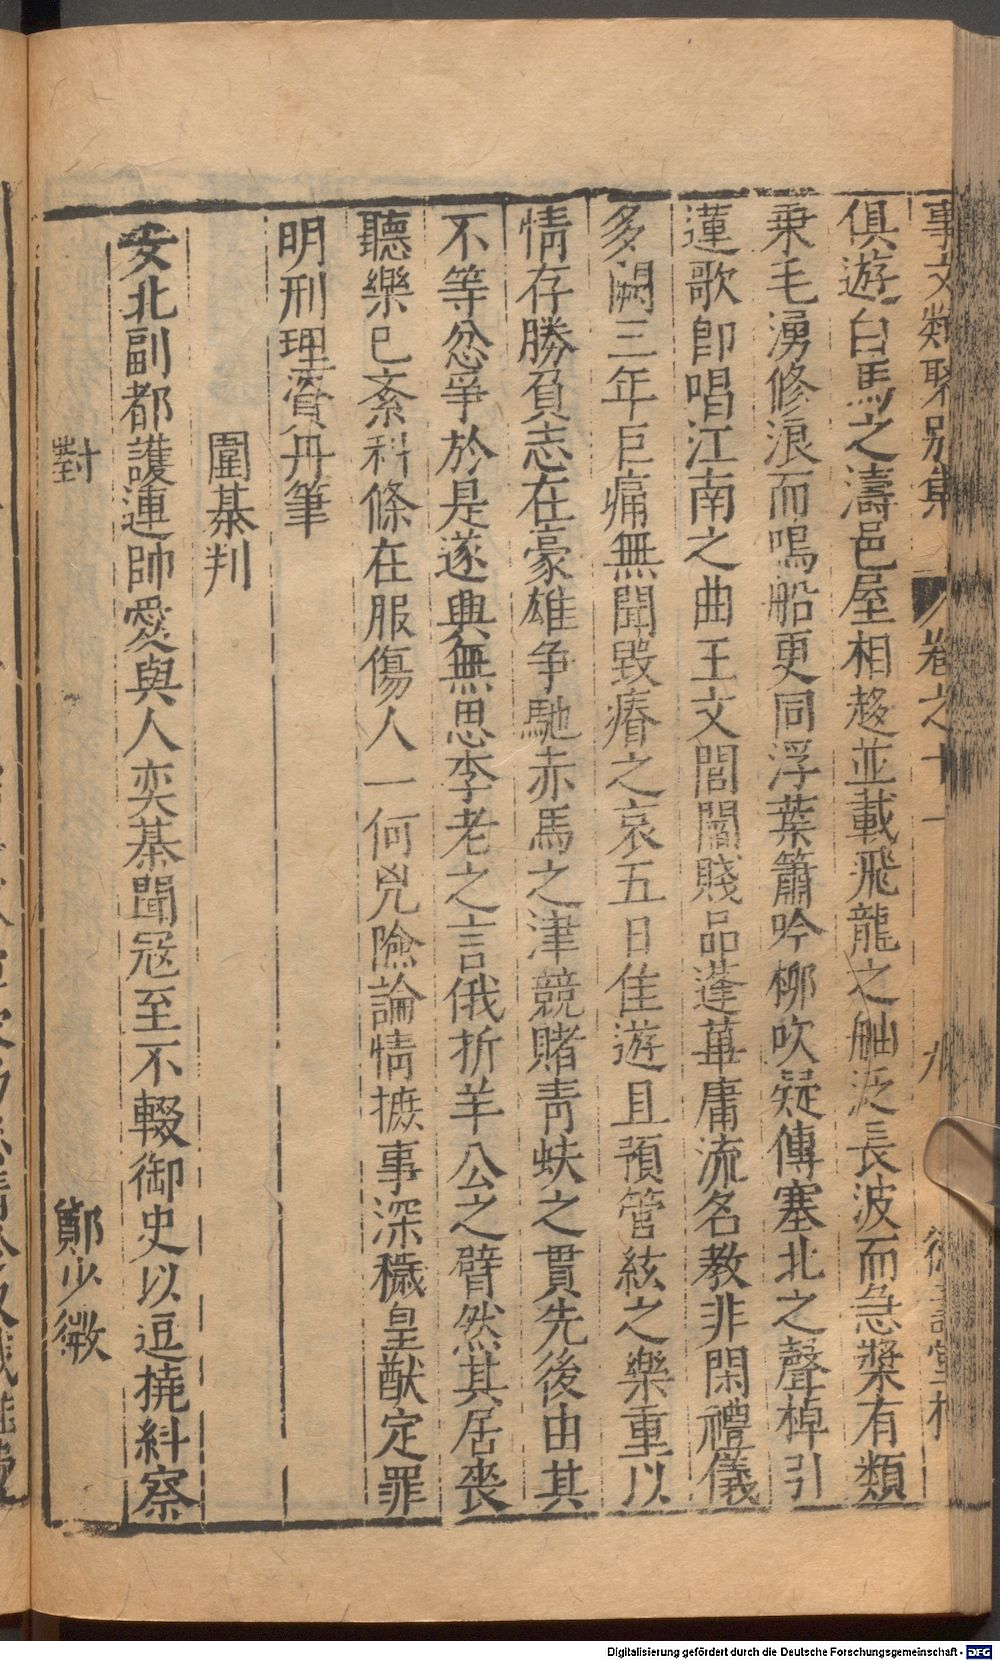 事文類聚別集 卷之十一 九
俱遊白馬之濤邑屋相趍並載飛龍之舳泛長波而急槳有類
乗毛湧修浪而鳴船更同浮葉簫吟柳吹疑傳塞北之聲棹引
蓮歌卽唱江南之曲王文閭閻賤品蓬蓽庸流名教非閑禮儀
多闕三年巨痛無聞毀瘠之哀五日佳遊且預管絃之樂重以
情存勝負志在豪雄争馳赤馬之津競賭青蚨之貫先後由其
不等忿爭於是遂興無思李老之言俄折羊公之臂然其居喪
聽樂已紊科條在服傷人一何兇險論情摭事深穢皇猷定罪
明刑理資丹筆
圍棊判
安北副都護連帥愛與人奕棊聞冦至不輟御史以逗撓糾察
對 鄭少微
Digitalisierung gefördert durch die Deutsche Forschungsgemeinschaft - DFG